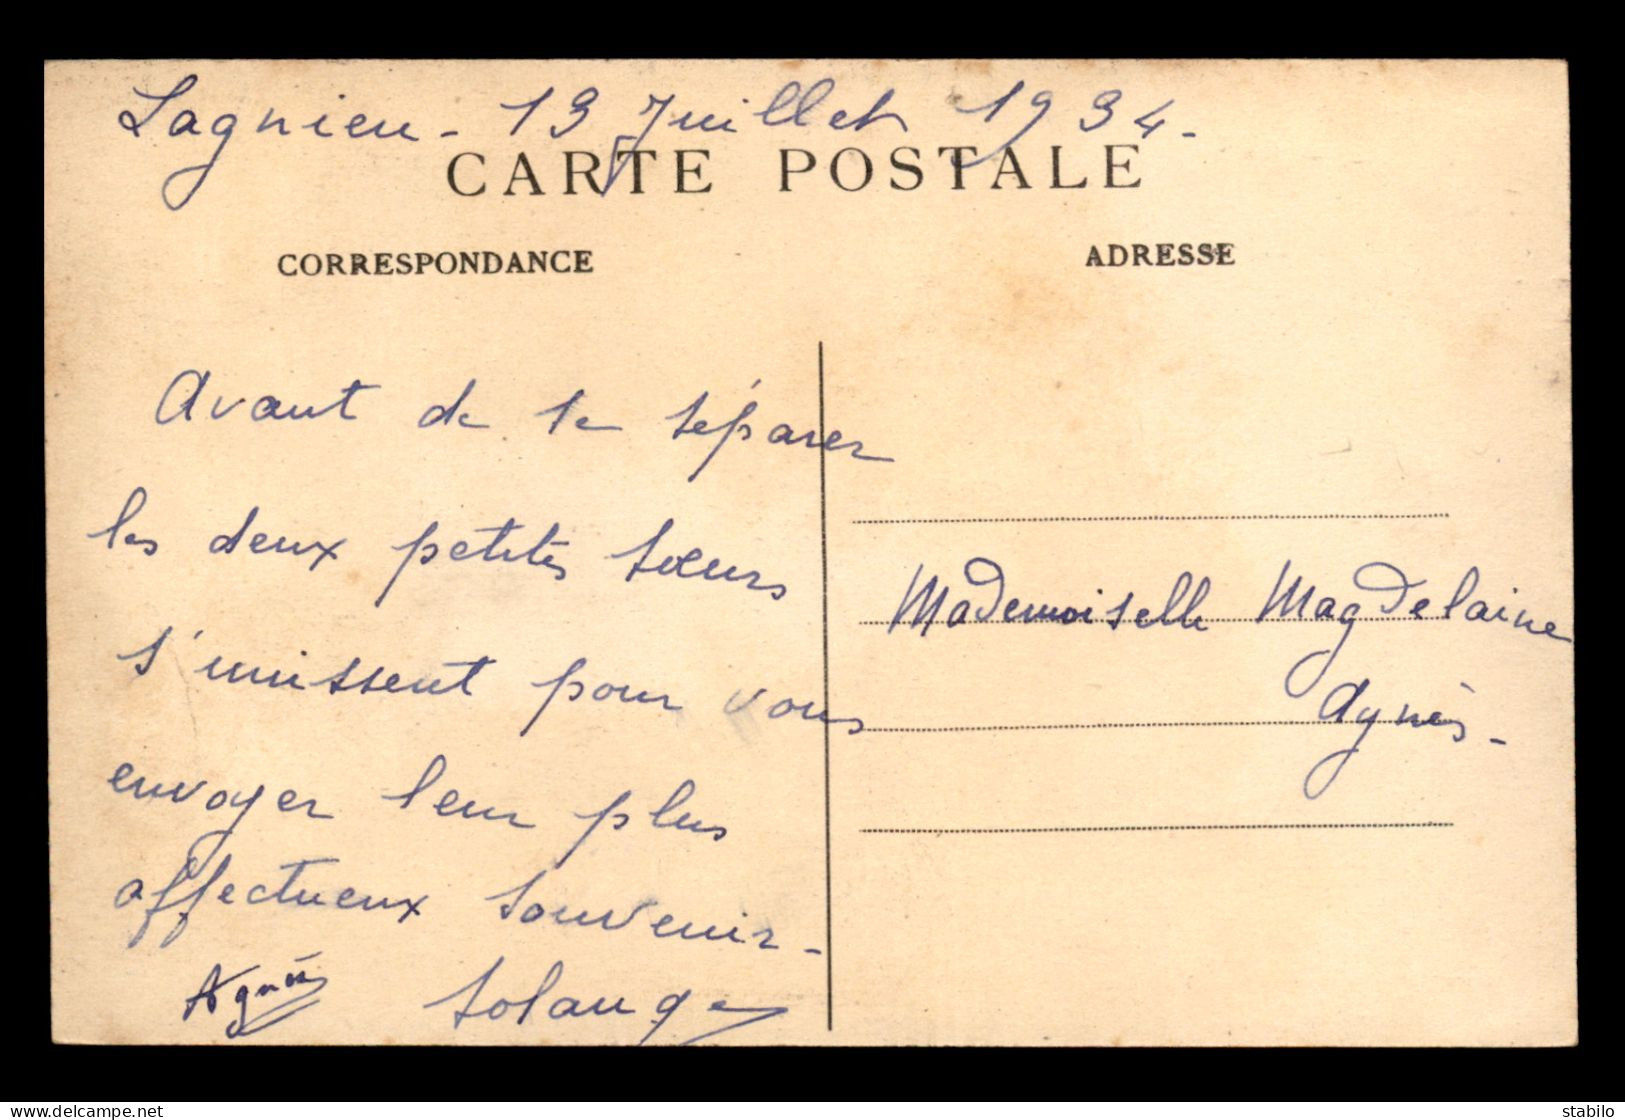 Lagnieu - 13 Juillet 1934 -
CARTE POSTALE
CORRESPONDANCE
ADRESSE
Avant de se séparer
les deux petites sœurs
s'unissent pour vous
envoyer leur plus
affectueux souvenir -
Agnès Solange
Mademoiselle Magdelaine
Agnès -
stabilo